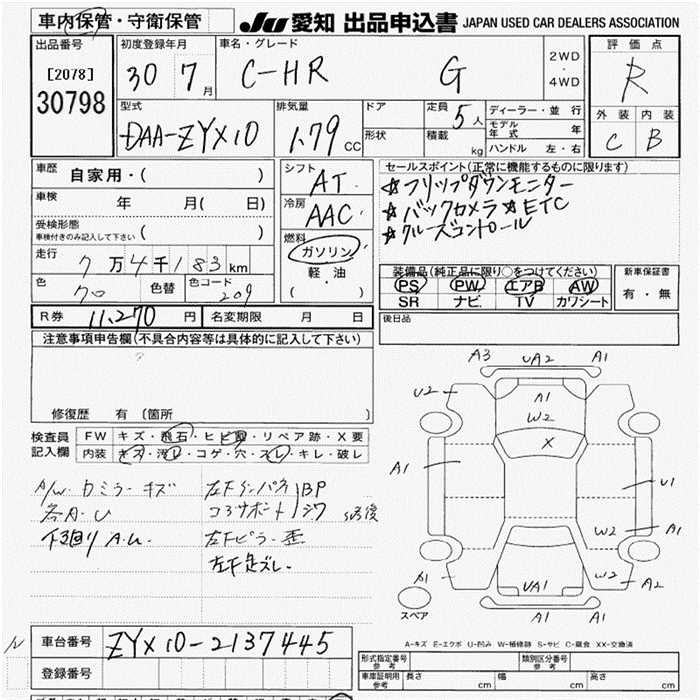 車内保管・守衛保管
JU 愛知 出品申込書 JAPAN USED CAR DEALERS ASSOCIATION
出品番号
[2078]
30798
初度登録年月
30 7 月
車名・グレード
C-HR G
2WD
・
4WD
評価点
R
外装 内装
C B
型式
DAA-ZYX10
排気量
1.79 CC
ドア
形状
定員 5 人
積載 kg
ディーラー・並 行
モデル年式 年
ハンドル 左・右
車歴
自家用・( )
車検
年 月( 日)
受検形態
車検付きのみ記入して下さい ( )
走行
7万4千183km
色
クロ
色替
色コード
209
シフト
AT
冷房
AAC
燃料
ガソリン
軽・油
( ・ )
セールスポイント(正常に機能するものに限ります)
☆フリップダウンモニター
☆バックカメラ ☆ETC
☆クルーズコントロール
装備品(純正品に限り○をつけてください)
PS PW エアB AW
SR ナビ TV カワシート
新車保証書
有・無
R券 11,270 円
名変期限 月 日
後日品
注意事項申告欄(不具合内容等は具体的に記入して下さい)
修復歴 有 〔箇所 〕
検査員
記入欄
FW キズ・飛石・ヒビ・リペア跡・X要
内装 キズ・汚レ・コゲ・穴・スレ・キレ・破レ
A/W. ロミラーキズ
各A・U
下回り A.U.
左下インパネ
コアサポート
BP
シワ
左下ピラー歪
左下足ズレ.
A3 UA2 A1
U2
A1
W2
X
A1
U1
W2 A1
A1
UA1
W2 A2
A1 A1
スペア
A-キズ E-エクボ U-凹み W-補修跡 S-サビ C-腐食 XX-交換済
車台番号
ZYX10-2137445
登録番号
形式指定番号
参考
類別区分番号
参考
車庫証明用
参考
長さ cm
幅 cm
高さ cm